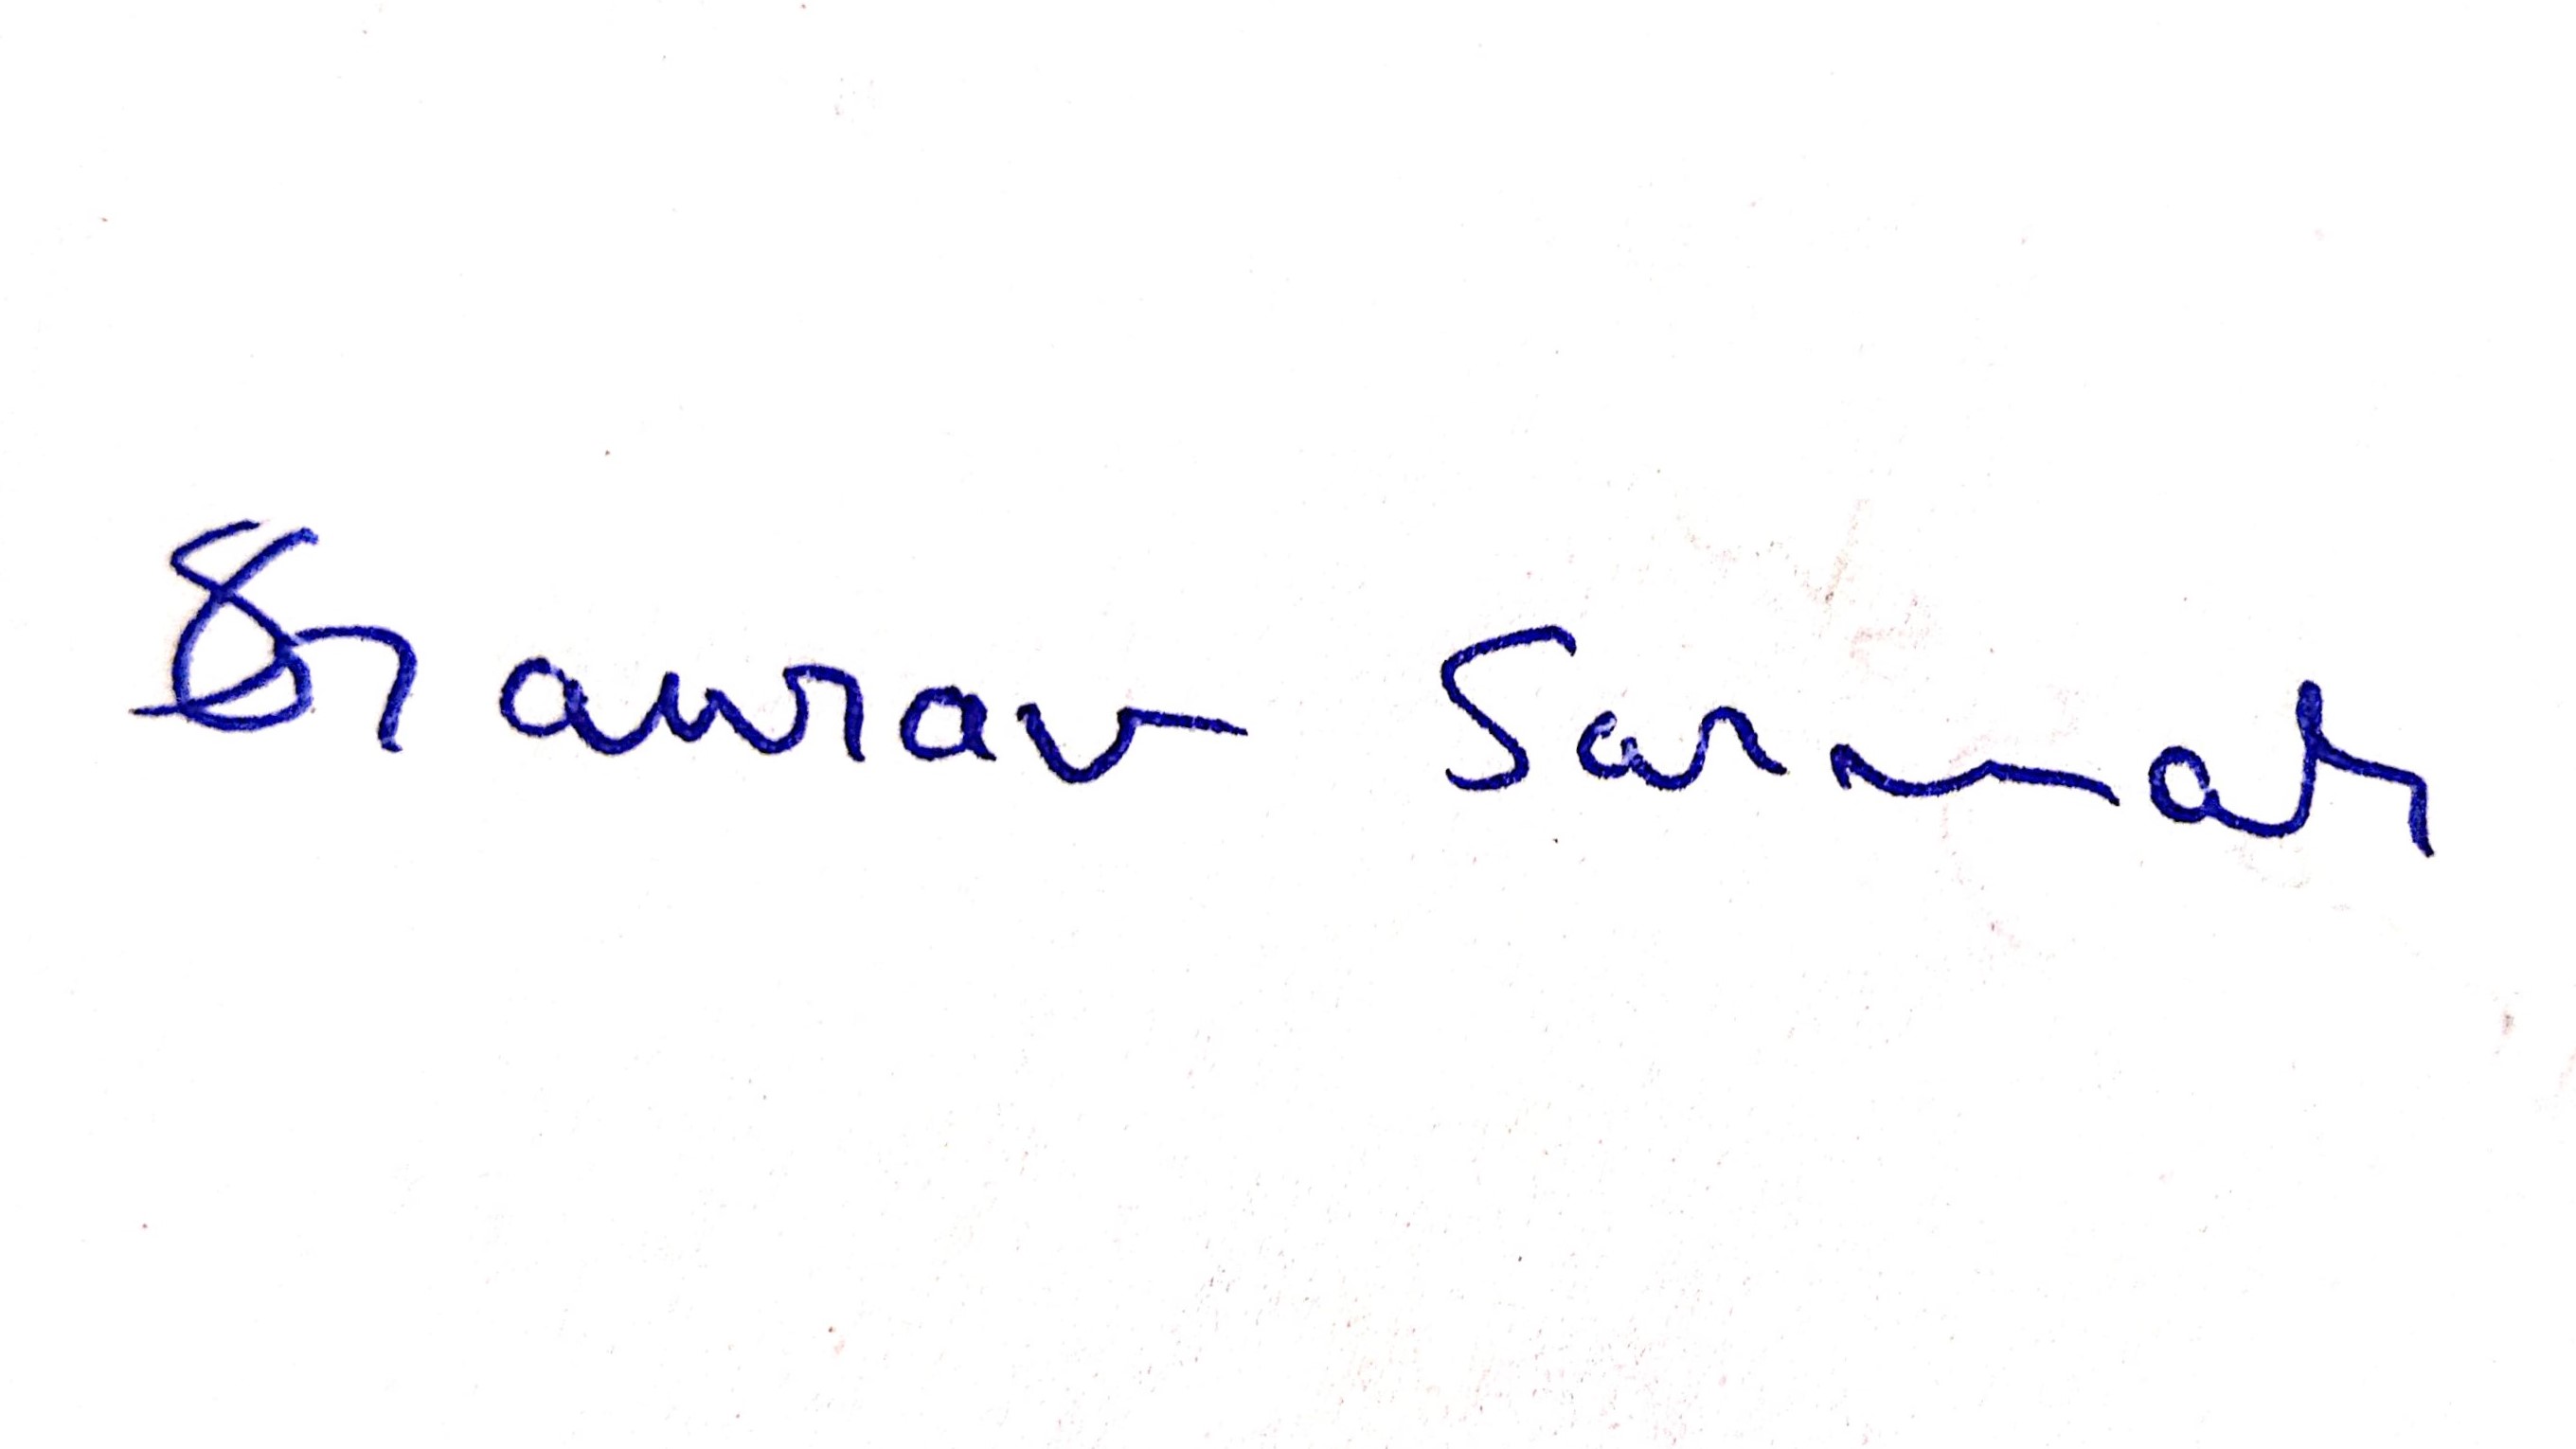 Gaurav Sarmah